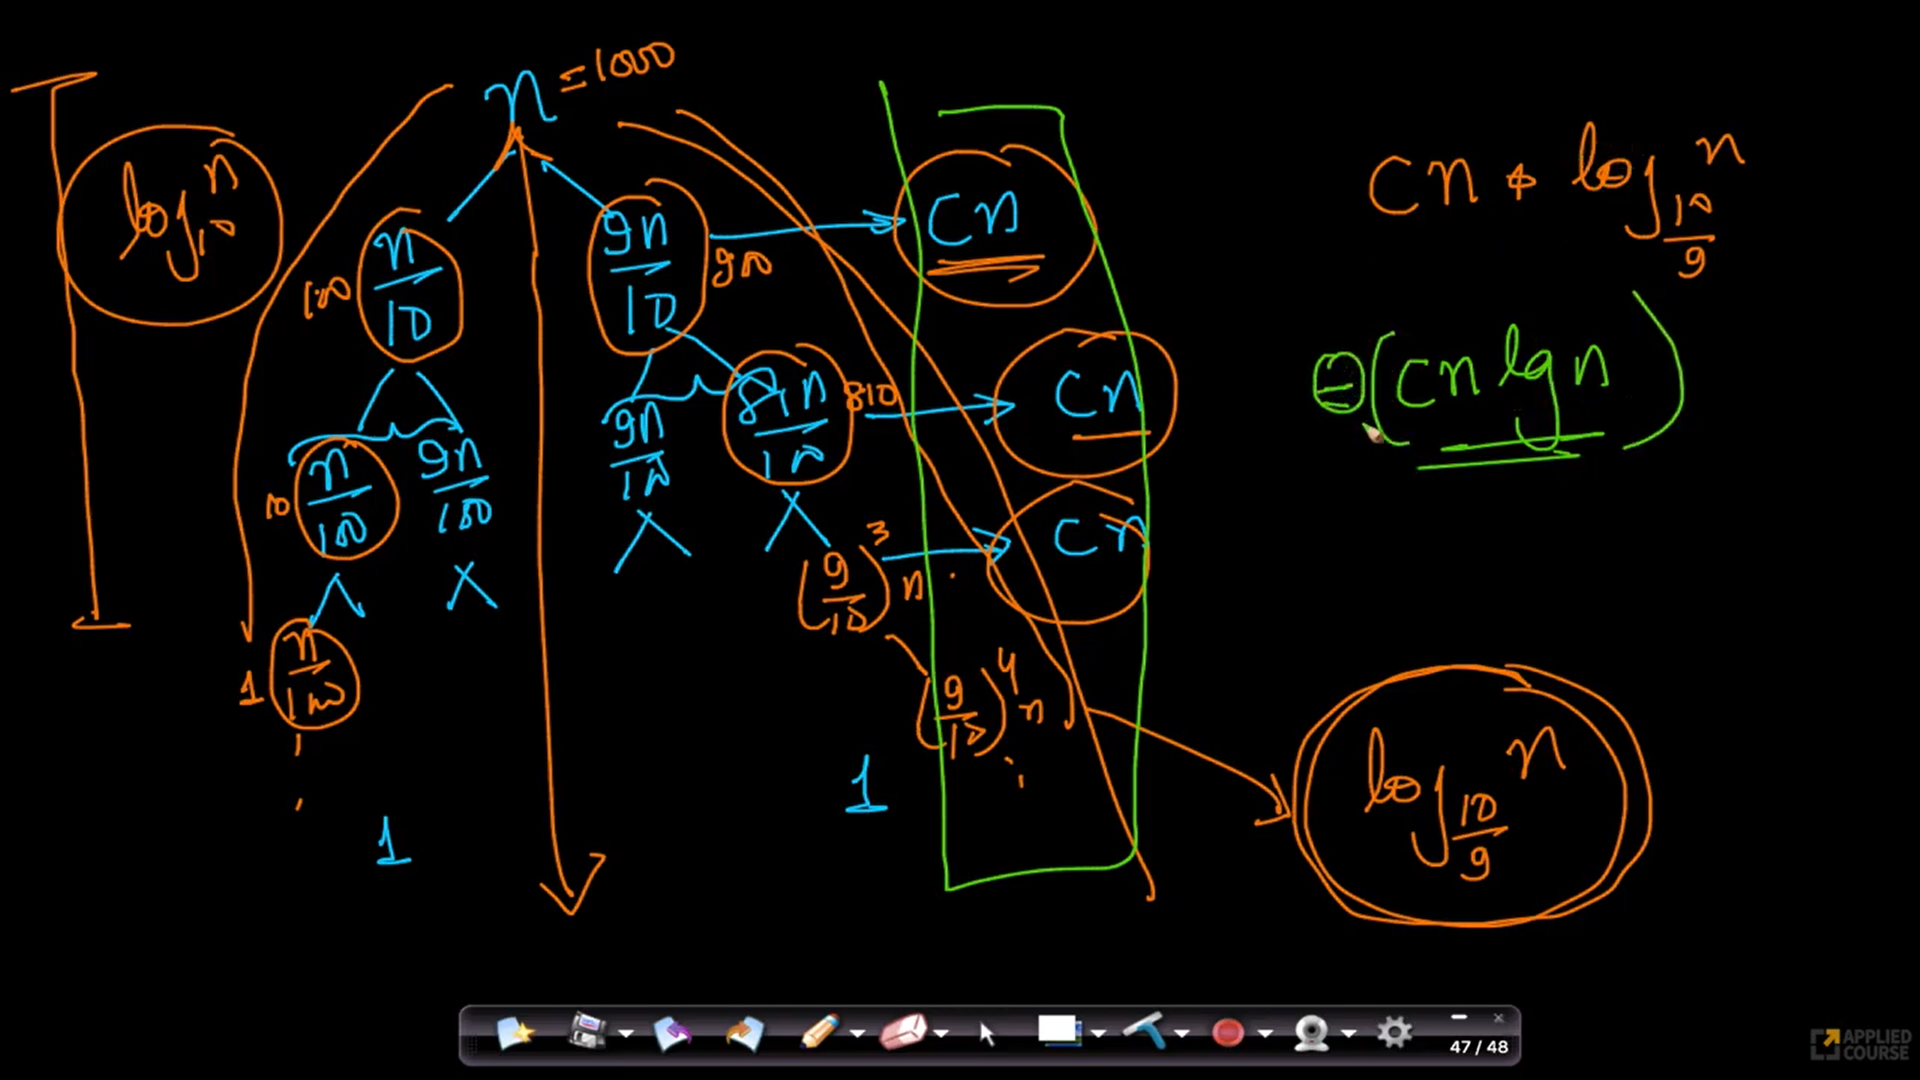 n = 1000
log₁₀ n
n/10
100
9n/10
900
cn
n/100
10
9n/100
9n/100
81n/100
810
cn
n/1000
1
(9/10)³ n
cn
(9/10)⁴ n
1
1
cn * log_{10/9} n
Θ(cn lg n)
log_{10/9} n
47 / 48
APPLIED
COURSE